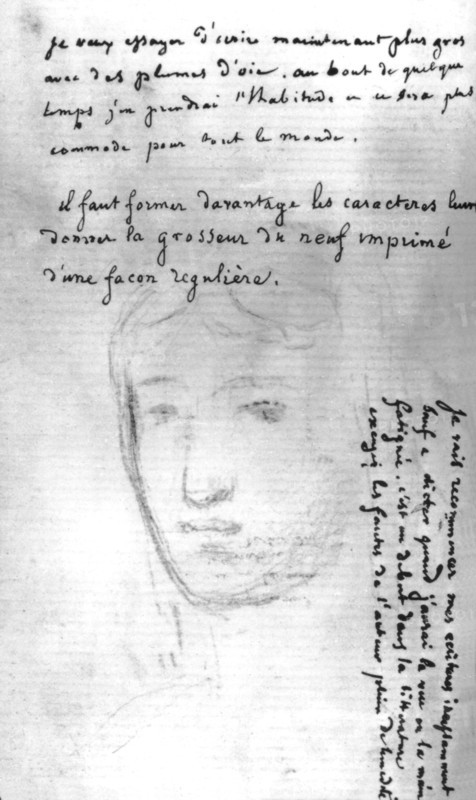 je veux essayer d'ecrire maintenant plus gros
avec des plumes d'oie. au bout de quelque
temps j'en prendrai l'habitude et ce sera plus
commode pour tout le monde.
il faut former davantage les caracteres leur
donner la grosseur du neuf imprimé
d'une façon regulière.
Je vais recommencer mes ecritures incessamment
sauf a dicter quand j'aurai la vue ou la main
fatiguée. c'est un debut dans la litterature
excusez les fautes de l'auteur plein de